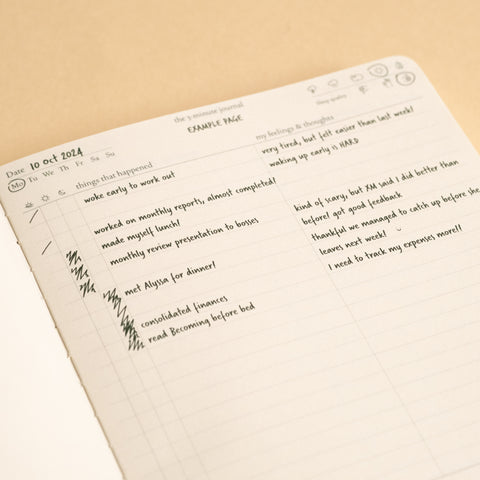 the 5 minute journal
EXAMPLE PAGE
Date 10 Oct 2024
Mo Tu We Th Fr Sa Su
Sleep quality
things that happened
my feelings & thoughts
woke early to work out
very tired, but felt easier than last week!
waking up early is HARD
worked on monthly reports, almost completed!
made myself lunch!
monthly review presentation to bosses
kind of scary, but XM said I did better than
before! got good feedback
met Alyssa for dinner!
thankful we managed to catch up before she
leaves next week!
consolidated finances
I need to track my expenses more!!
read Becoming before bed